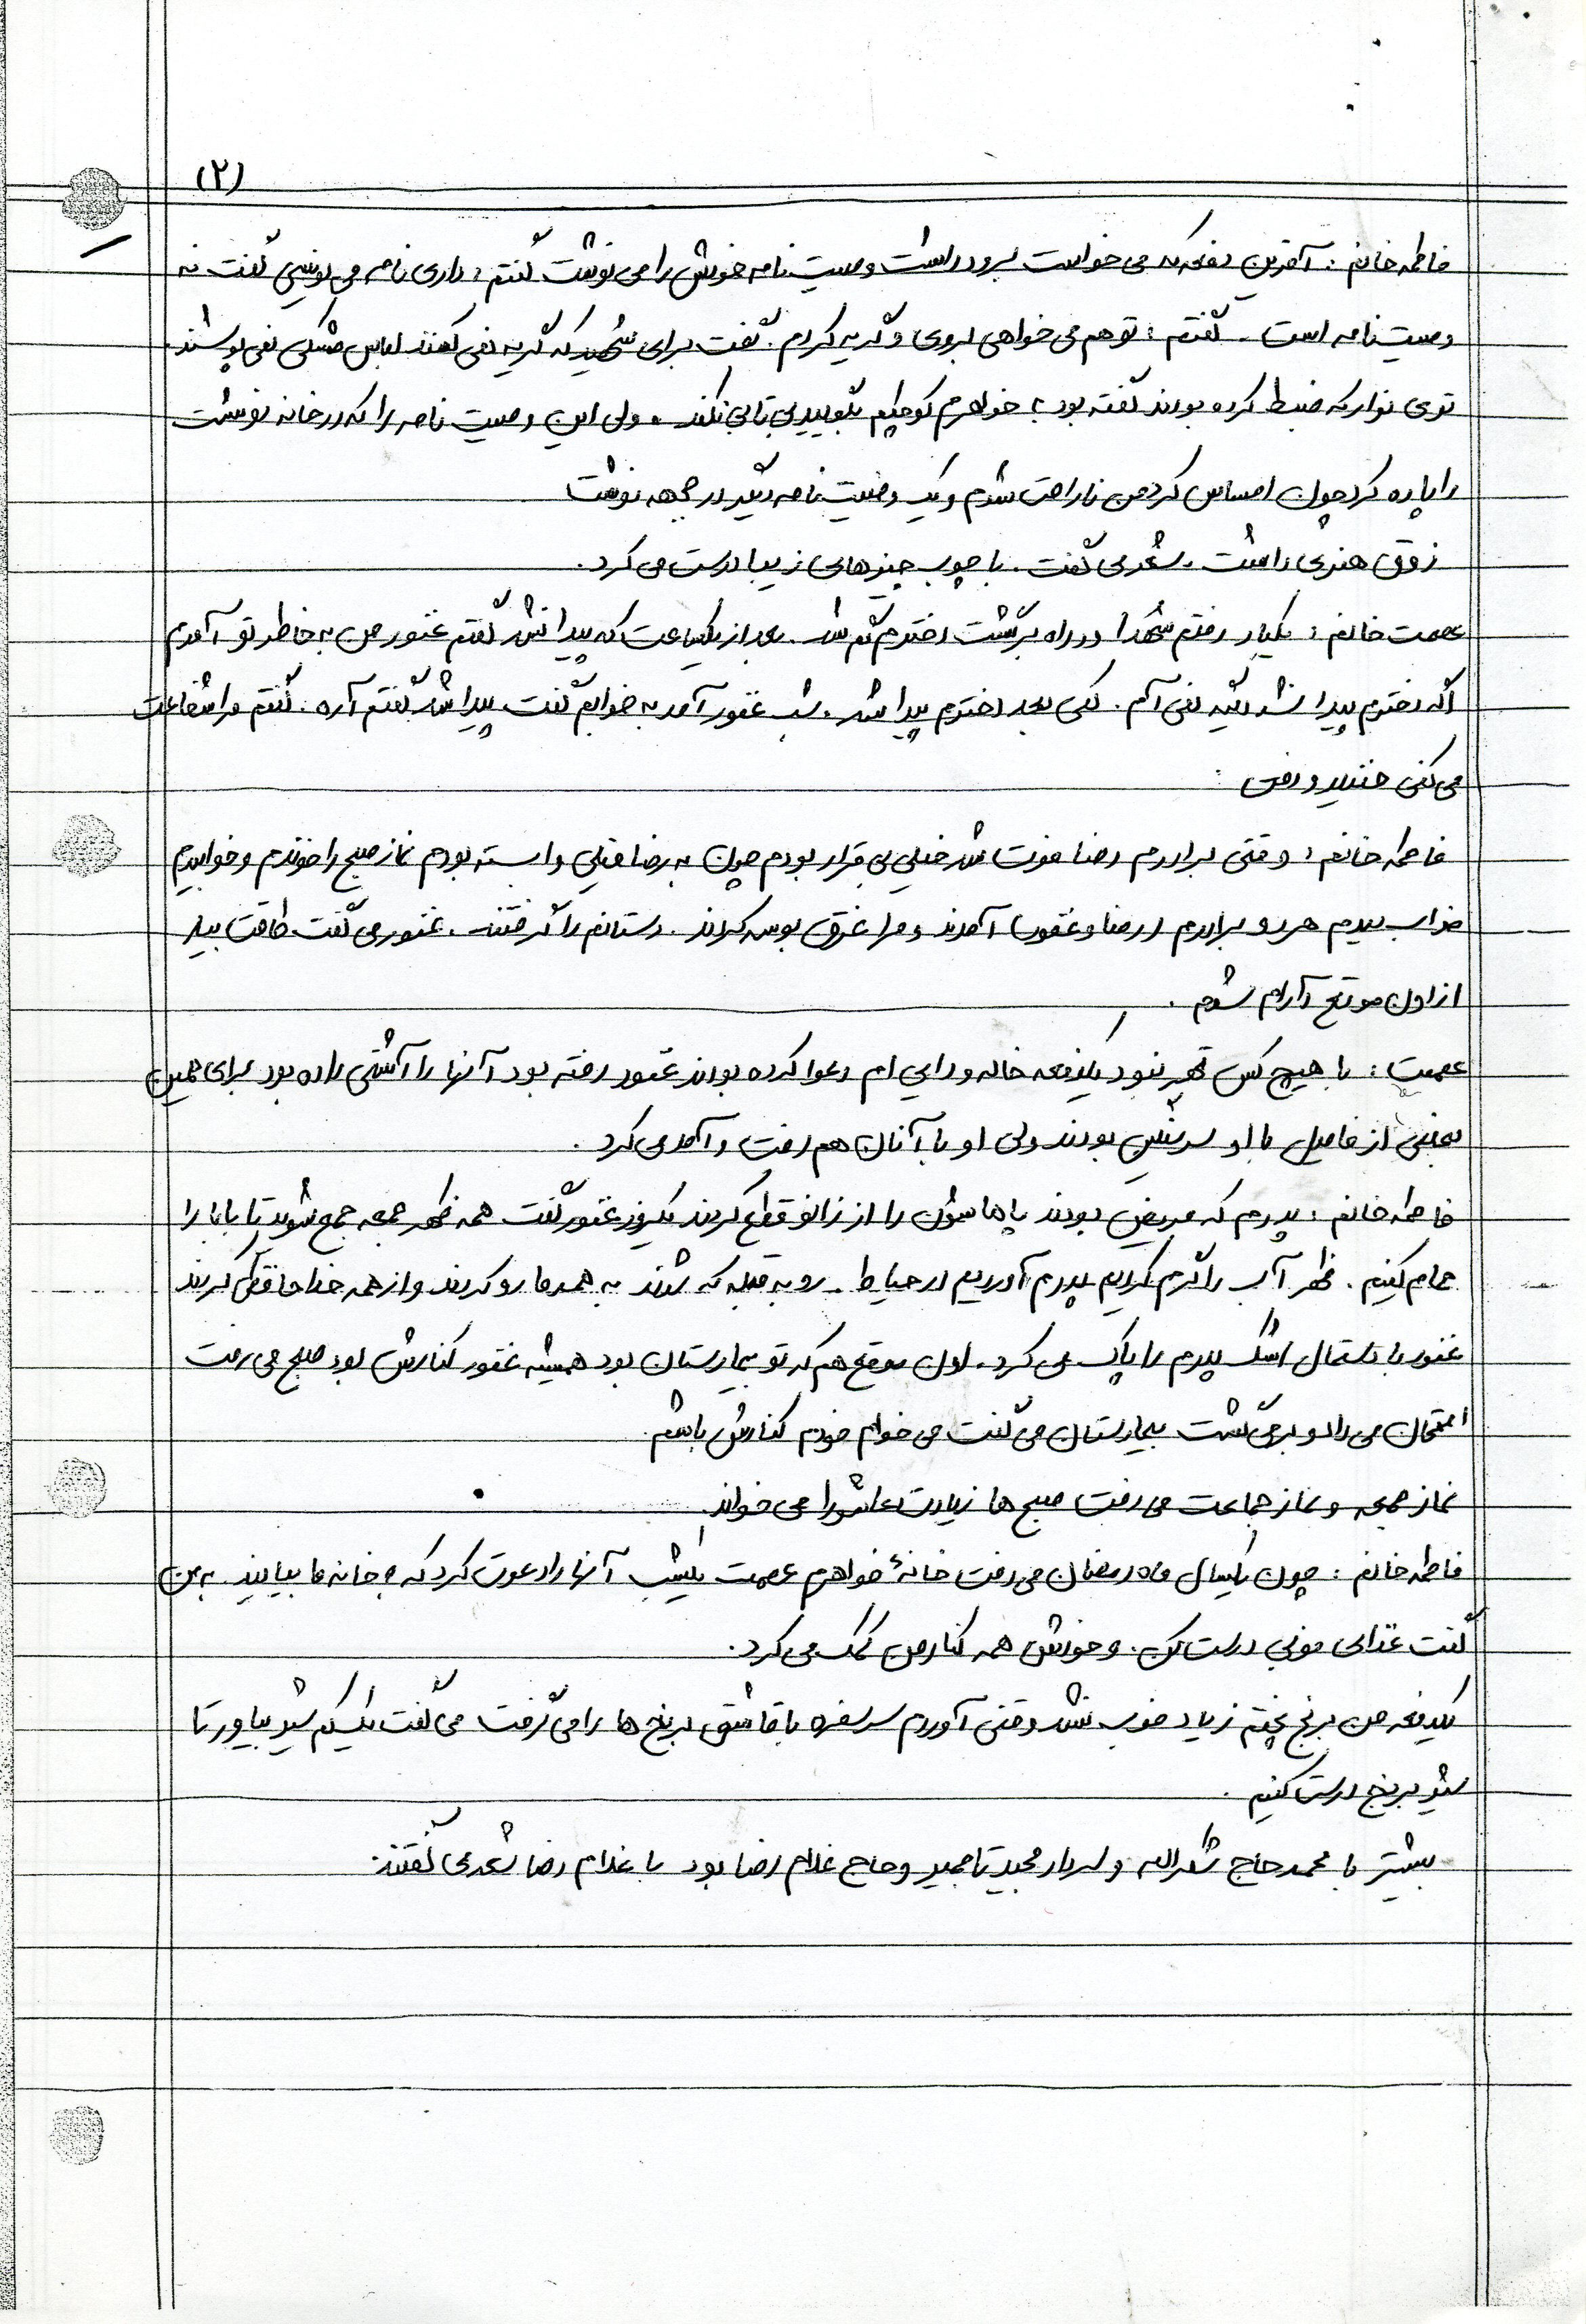 (۲)
فاطمه خانم : آخرین دفعه که می خواست برود داشت وصیت نامه خودش را می نوشت گفتم : داری نامه می نویسی گفت نه
وصیت نامه است . گفتم : تو هم می خواهی بروی و گریه کردم . گفت برای شهید که گریه نمی کنند لباس مشکی نمی پوشند .
توی نوار که ضبط کرده بودند گفته بود به خواهرم کوچکم بگویید بی تابی نکند . ولی این وصیت نامه را که در خانه نوشت
را پاره کرد چون احساس کرد من ناراحت شدم و یک وصیت نامه دیگر در جبهه نوشت
ذوق هنری داشت . شعر می گفت . با چوب چیزهای زیبا درست می کرد .
عصمت خانم : یکبار رفتم شهدا در راه برگشت دخترم گم شد . بعد از یکساعت که پیدا نشد گفتم غفور من به خاطر تو آمدم
اگه دخترم پیدا نشد دیگه نمی آم . کمی بعد دخترم پیدا شد . شب غفور آمد به خوابم گفت پیدا شد گفتم آره . گفتم مرا شفاعت
می کنی خندید و رفت :
فاطمه خانم : وقتی برادرم رضا فوت شد خیلی بی قرار بودم چون به رضا خیلی وابسته بودم نماز صبح را خوندم و خوابیدم
خواب دیدم هر دو برادرم (رضا و غفور) آمدند و مرا غرق بوسه کردند . دستانم را گرفتند . غفور می گفت طاقت بیار
از اون موقع آرام شدم .
عصمت : با هیچ کس قهر نبود یکدفعه خاله و دایی ام دعوا کرده بودند غفور رفته بود آنها را آشتی داده بود برای همین
بعضی از فامیل با او سرسنگین بودند ولی او با آنان هم رفت و آمد می کرد .
فاطمه خانم : پدرم که مریض بودند پاهاشون را از زانو قطع کردند یکروز غفور گفت همه ظهر جمعه جمع شوید تا بابا را
حمام کنیم . ظهر آب را گرم کردیم پدرم آوردیم در حیاط . رو به قبله که شدند به همه ما رو کردند و از همه خداحافظی کردند
غفور با دستمال اشک پدرم را پاک می کرد . اون موقع هم که تو بیمارستان بود همیشه غفور کنارش بود صبح می رفت
امتحان می داد و برمی گشت بیمارستان می گفت می خوام خودم کنارش باشم .
نماز جمعه و نماز جماعت می رفت صبح ها زیارت عاشورا می خواند .
فاطمه خانم : چون یکسال ماه رمضان می رفت خانهٔ خواهرم عصمت یکشب آنها را دعوت کرد که به خانه ما بیایند . به من
گفت غذای خوبی درست کن . و خودش همه کنار من کمک می کرد .
یکدفعه من برنج پختم زیاد خوب نشد وقتی آوردم سر سفره با قاشق برنج ها را می گرفت می گفت یکیسکم شیر بیاور تا
شیر برنج درست کنیم .
بیشتر با محمد حاج شکراله و سردار مجید تا مجید و حاج غلام رضا بود با غلام رضا شعر می گفتند .